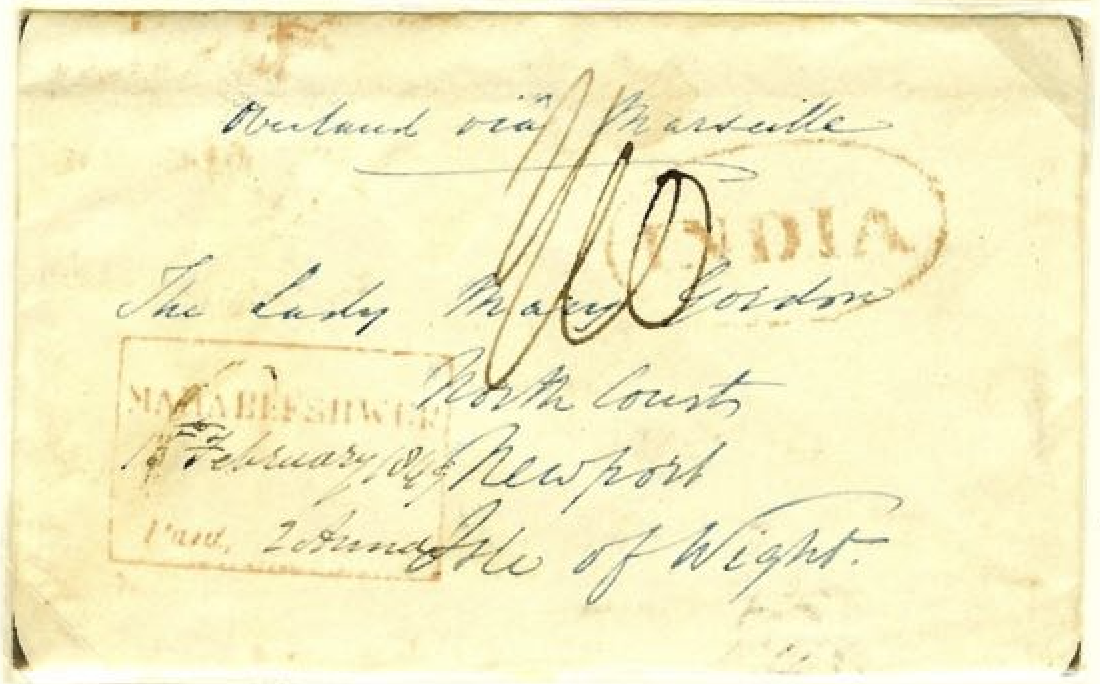 Overland via Marseille
INDIA
The Lady Mary Gordon
North Court
Newport
Isle of Wight.
February
Paid, 2 Annas